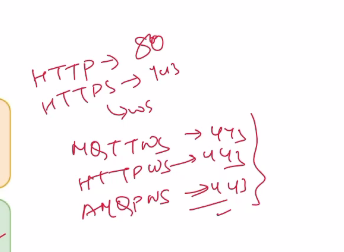 HTTP → 80
HTTPS → 443
↳ WS
MQTTWS → 443
HTTPWS → 443
AMQPWS → 443